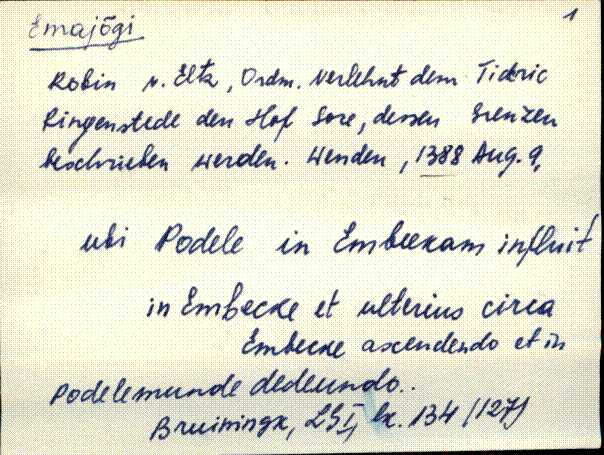 Emajõgi
1
Robin v. Eltz, Ordm. verlehnt dem Tideric
Ringenstede den Hof Sore, dessen Grenzen
beschrieben werden. Wenden, 1388 Aug. 9.
ubi Podele in Embeekam influit
in Embecke et ulterius circa
Embecke ascendendo et in
Podelemunde dedeundo..
Bruiningk, LG I, lk. 134 (127)